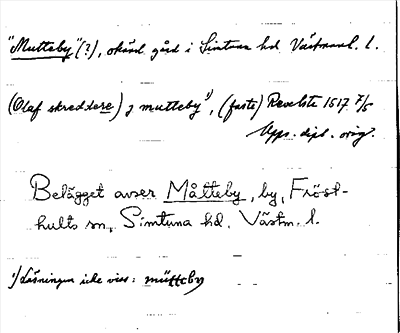 "Mutteby"(?), okänd gård i Simtuna hd Västmanl. l.
(Olaf skreddere) j mutteby¹⁾, (faste) Revelsta 1517 7/5
Upps. dipl. orig.
Belägget avser Målteby, by, Fröst-
hults sn, Simtuna hd, Västm. l.
¹⁾ Läsningen icke viss: mütteby